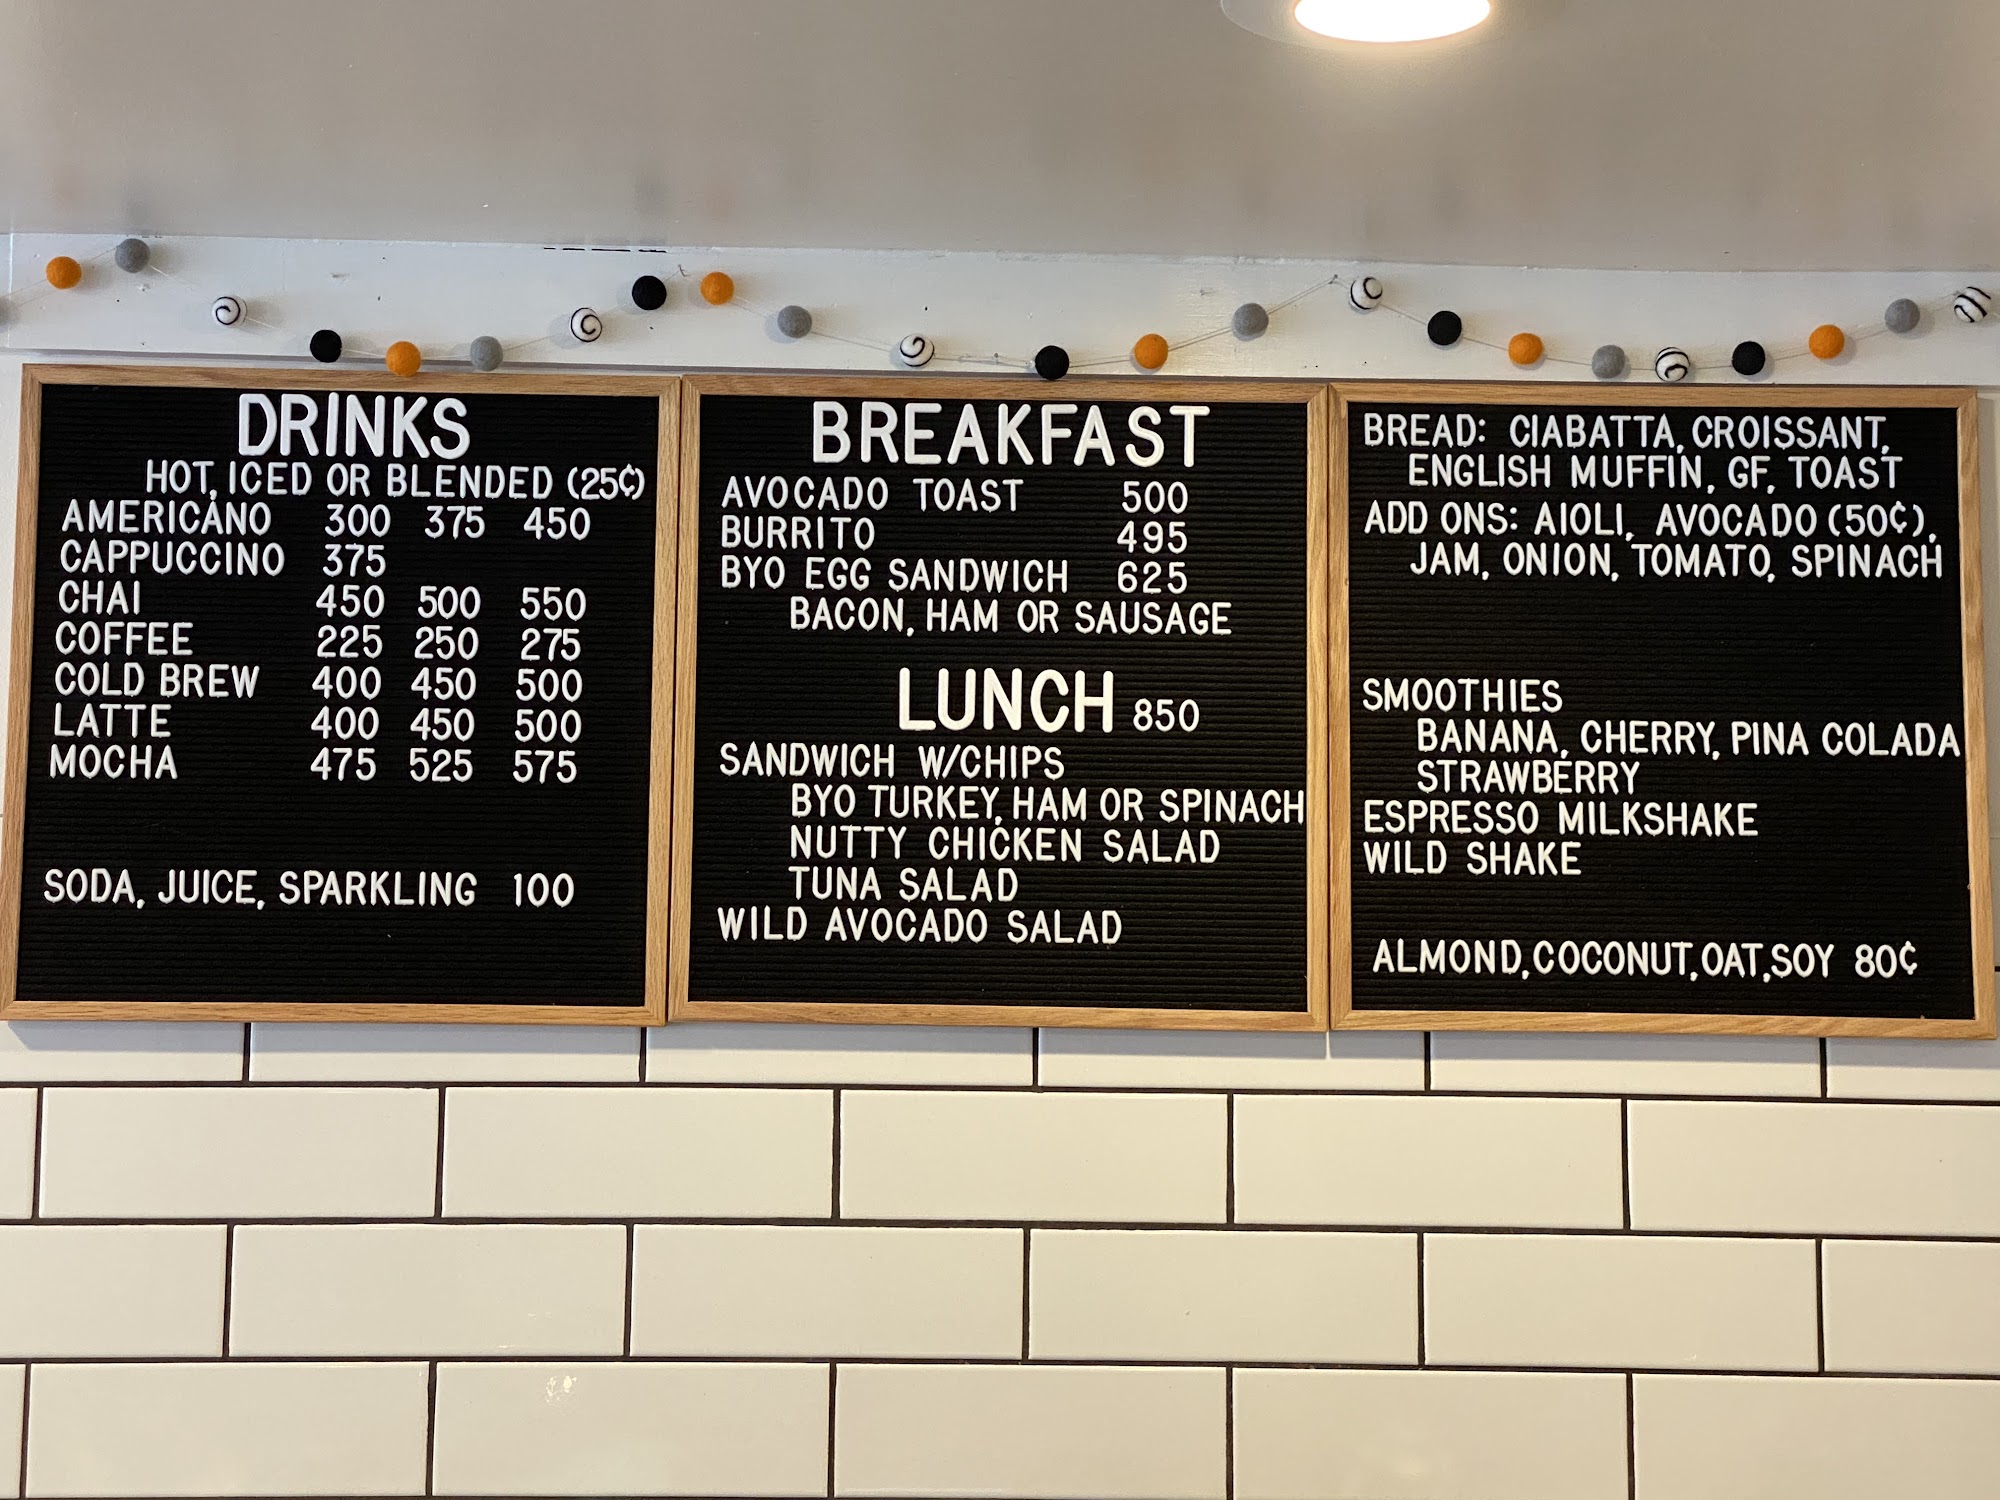 DRINKS
HOT, ICED OR BLENDED (25¢)
AMERICANO 300 375 450
CAPPUCCINO 375
CHAI 450 500 550
COFFEE 225 250 275
COLD BREW 400 450 500
LATTE 400 450 500
MOCHA 475 525 575
SODA, JUICE, SPARKLING 100
BREAKFAST
AVOCADO TOAST 500
BURRITO 495
BYO EGG SANDWICH 625
BACON, HAM OR SAUSAGE
LUNCH 850
SANDWICH W/CHIPS
BYO TURKEY, HAM OR SPINACH
NUTTY CHICKEN SALAD
TUNA SALAD
WILD AVOCADO SALAD
BREAD: CIABATTA, CROISSANT,
ENGLISH MUFFIN, GF, TOAST
ADD ONS: AIOLI, AVOCADO (50¢),
JAM, ONION, TOMATO, SPINACH
SMOOTHIES
BANANA, CHERRY, PINA COLADA
STRAWBERRY
ESPRESSO MILKSHAKE
WILD SHAKE
ALMOND, COCONUT, OAT, SOY 80¢